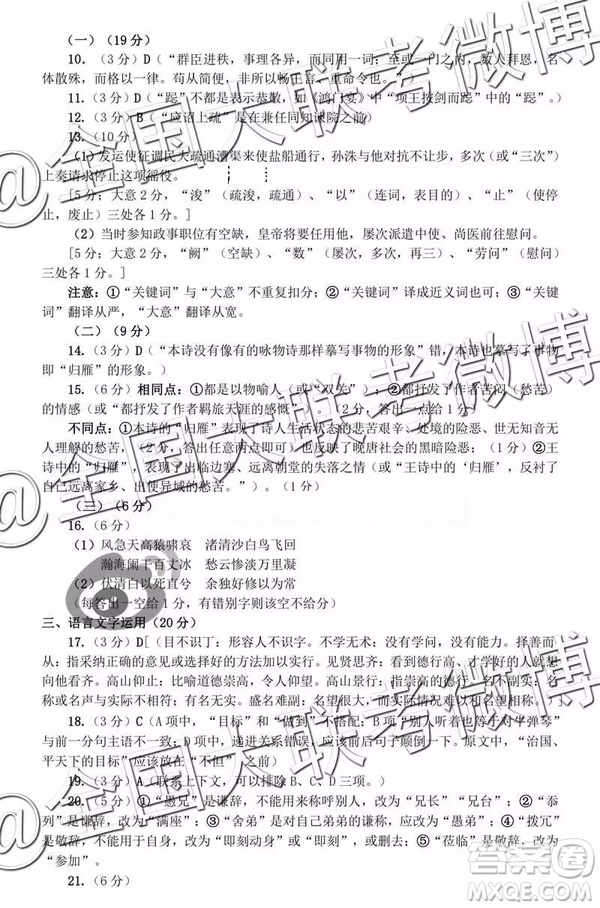 （一）（19分）
10.（3分）D（“群臣进秩，事理各异，而同用一词；至或一门之内，数人拜恩，名
体散殊，而格以一律。苟从简便，非所以畅王言、重命令也。”）
11.（3分）D（“跽”不都是表示恭敬，如《鸿门宴》中“项王按剑而跽”中的“跽”。）
12.（3分）B（“应诏上疏”是在兼任同知谏院之前）
13.（10分）
（1）发运使征调民夫疏通漕渠来使盐船通行，孙洙与他对抗不让步，多次（或“三次”）
上奏请求停止这项徭役。
[5分；大意2分，“浚”（疏浚，疏通）、“以”（连词，表目的）、“止”（使停
止，废止）三处各1分。]
（2）当时参知政事职位有空缺，皇帝将要任用他，屡次派遣中使、尚医前往慰问。
[5分；大意2分，“阙”（空缺）、“数”（屡次，多次，再三）、“劳问”（慰问）
三处各1分。]
注意：①“关键词”与“大意”不重复扣分；②“关键词”译成近义词均可；③“关键
词”翻译从严，“大意”翻译从宽。
（二）（9分）
14.（3分）D（“本诗没有像有的咏物诗那样摹写事物的形象”错，本诗也摹写了事物
即“归雁”的形象。）
15.（6分）相同点：①都是以物喻人（或“双关”）；②都抒发了作者苦闷（愁苦）
的情感（或“都抒发了作者羁旅天涯的感慨”）。（2分，答出一点给1分）
不同点：①本诗的“归雁”表现了诗人生活状态的悲苦艰辛、处境的险恶、世无知音无
人理解的愁苦，（2分，答出任意两点即可）也反映了晚唐社会的黑暗险恶（1分）；②王
诗中的“归雁”，表现了出临边塞、远离朝堂的失落之情（或“王诗中的‘归雁’，反衬了
自己远离家乡、出使异域的愁苦。”）。（1分）
（三）（6分）
16.（6分）
（1）风急天高猿啸哀 渚清沙白鸟飞回
瀚海阑干百丈冰 愁云惨淡万里凝
（2）伏清白以死直兮 余独好修以为常
（每答出一空给1分，有错别字则该空不给分）
三、语言文字运用（20分）
17.（3分）D[（目不识丁：形容人不识字。不学无术：没有学问，没有能力。择善而从：
指采纳正确的意见或选择好的方法加以实行。见贤思齐：看到德行高、才学好的人就想向他
看齐。高山仰止：比喻道德崇高，令人仰望。高山景行：指崇高的德行。名不副实：名称或
名声与实际不相符。有名无实：空有名义或名声而没有实际。盛名难副：名望很大的人，实
际的才德常是很难跟名声相符，用来表示应该谦虚谨慎以和名望相称。）]
18.（3分）C（A项中，“目标”和“做到”不搭配；B项“别人听着也等于对牛弹琴”
与前一分句主语不一致；D项中，递进关系错误，应该前后句子颠倒一下。原文中，“治国、
平天下的目标”应该放在“不但”之前）
19.（3分）A（联系上下文，可以排除B、C、D三项。）
20.（5分）①“愚兄”是谦辞，不能用来称呼别人，改为“兄长”“兄台”；②“忝
列”改为“满座”；③“舍弟”是谦辞，对自己弟弟的谦称，应为“愚弟”；④“拨冗”
是敬辞，不能用于自身，改为“即刻动身”或“即刻”，或去掉；⑤“莅临”是敬辞，改为
“参加”。
21.（6分）
@全国大联考微博
@全国大联考微博
@全国大联考微博
答案圈
MXQE.COM